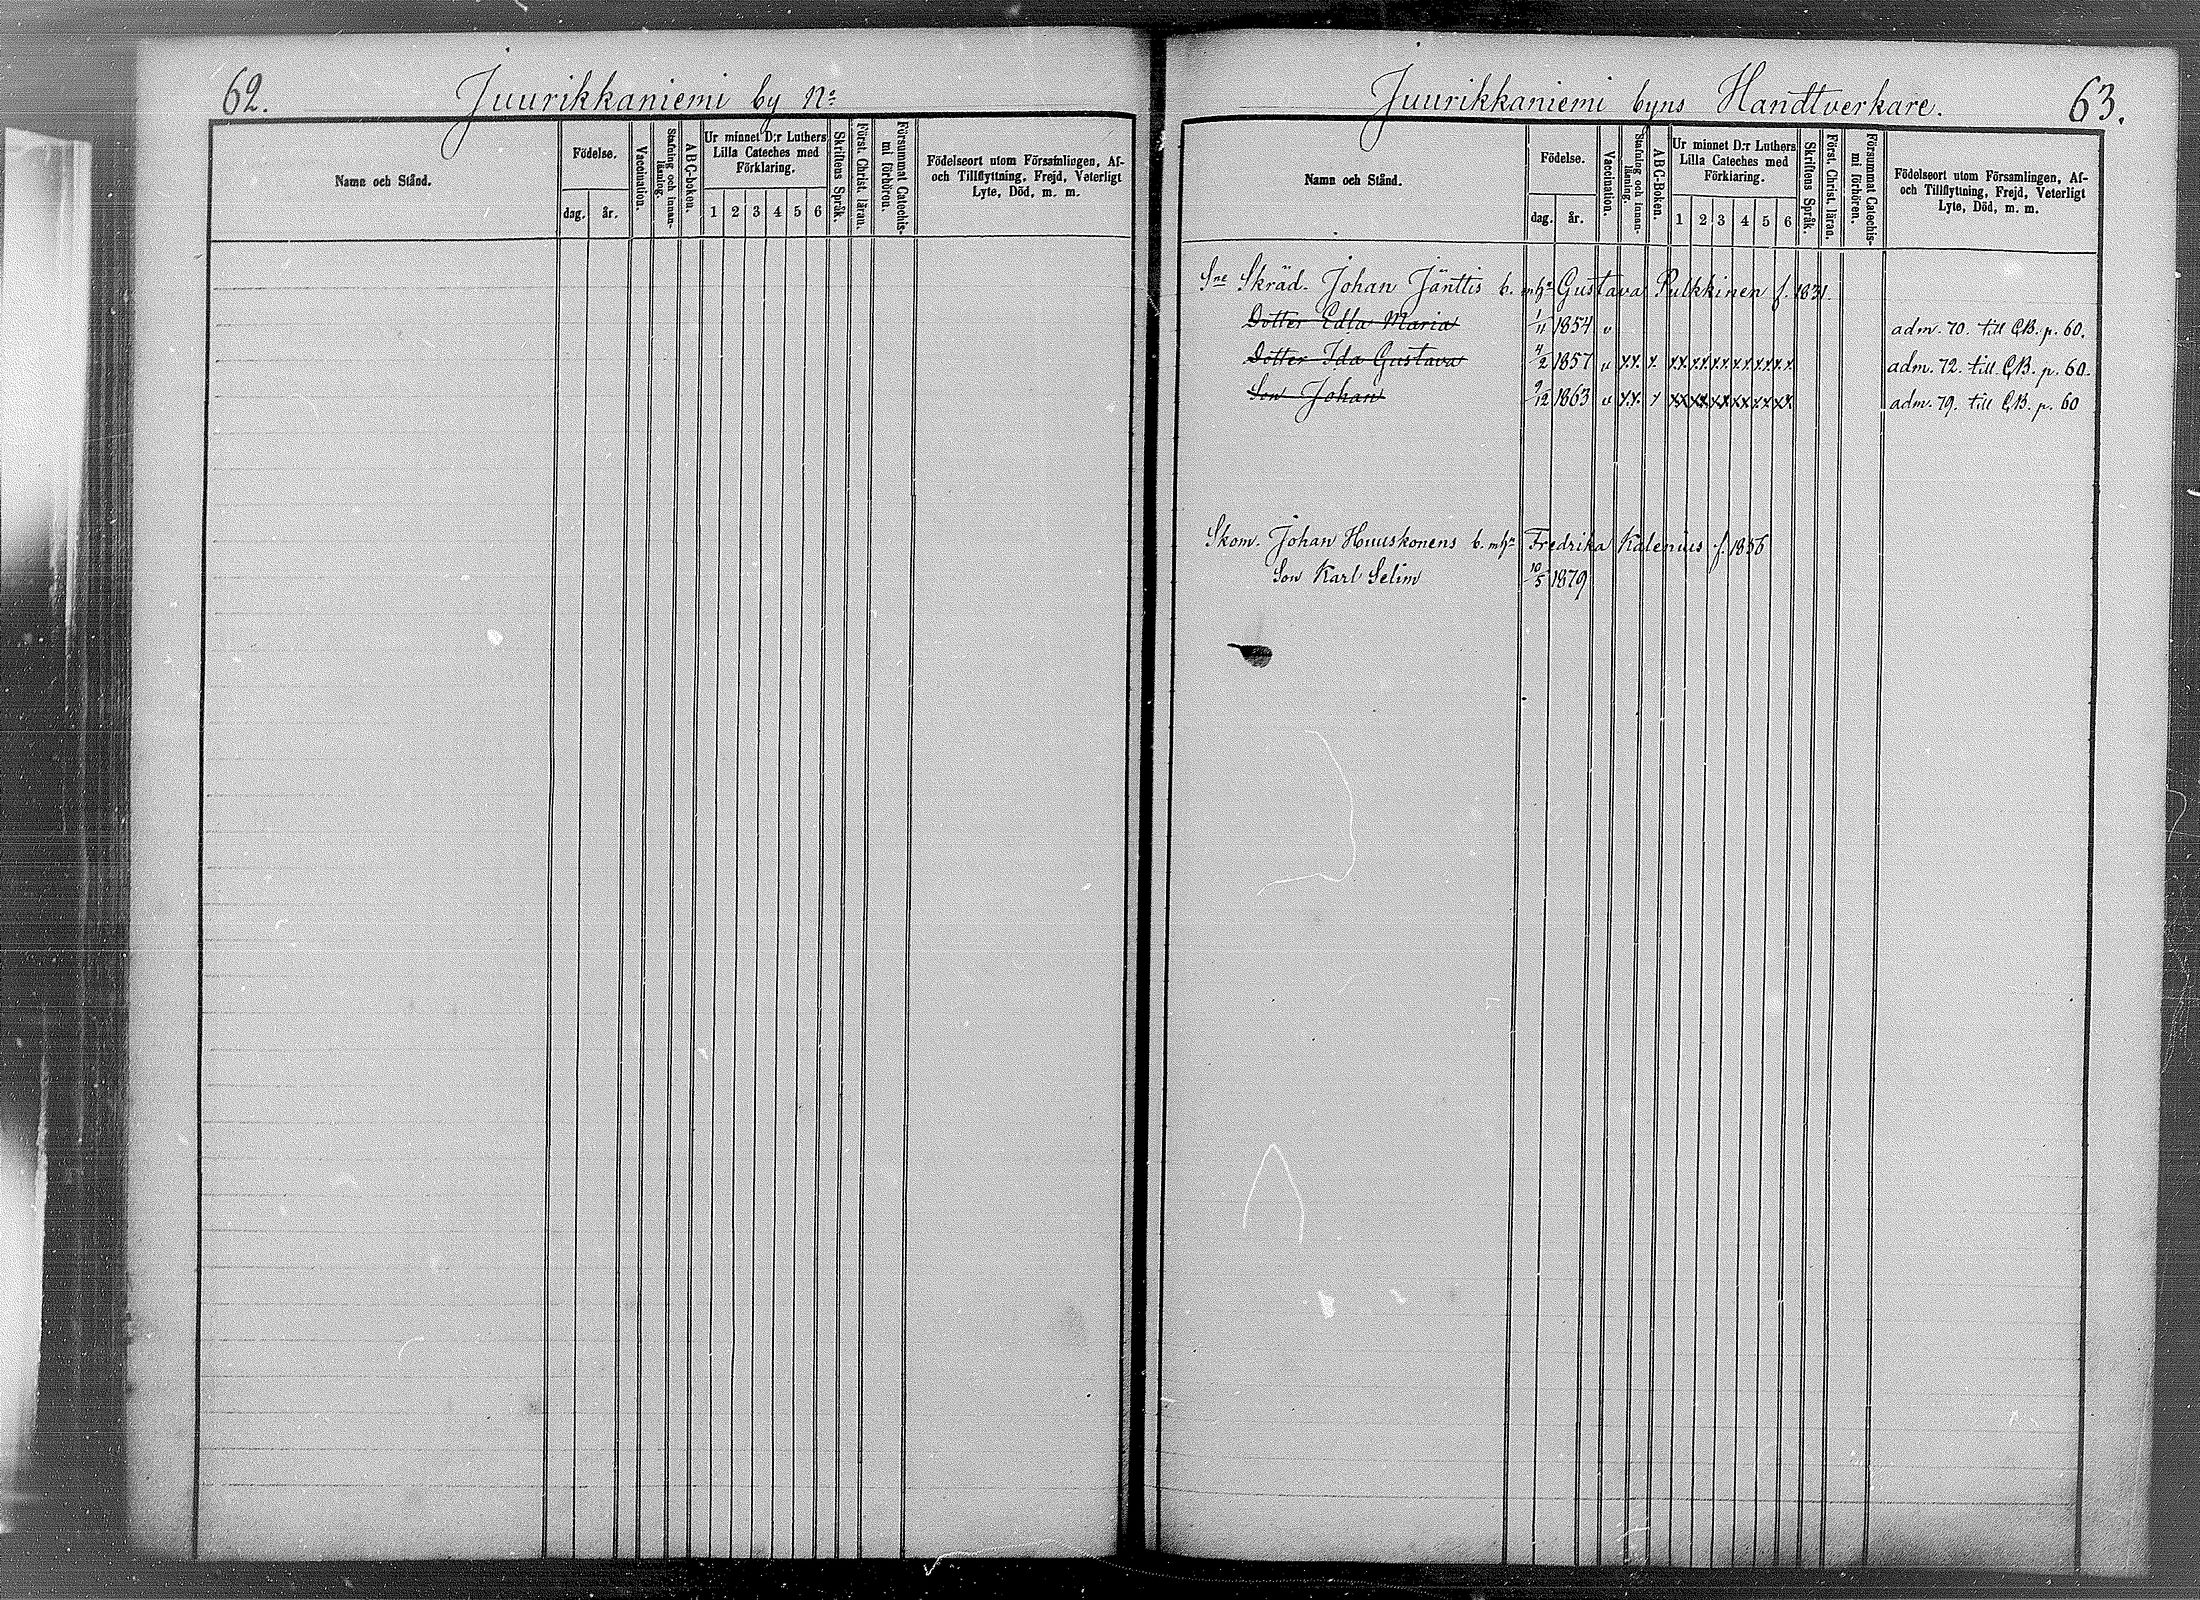 62.
Juurikkaniemi by No
Namn och Stånd.
Födelse.
dag. år.
Vaccination.
Stafning och innan-läsning.
A B C-boken.
Ur minnet D:r Luthers
Lilla Cateches med
Förklaring.
1 2 3 4 5 6
Skriftens Språk.
Först. Christ. läran.
Försummat Catechis-
mi förhören.
Födelseort utom Församlingen, Af-
och Tillflyttning, Frejd, Veterligt
Lyte, Död, m. m.
Juurikkaniemi byns Handtverkare.
63.
Namn och Stånd.
Födelse.
dag. år.
Vaccination.
Stafning och innan-läsning.
A B C-Boken.
Ur minnet D:r Luthers
Lilla Cateches med
Förklaring.
1 2 3 4 5 6
Skriftens Språk.
Först. Christ. läran.
Försummat Catechis-
mi förhören.
Födelseort utom Församlingen, Af-
och Tillflyttning, Frejd, Veterligt
Lyte, Död, m. m.
Sne Skräd. Johan Jänttis b. mh. Gustava Pulkkinen f. 1831.
Dotter Edla Maria 1/11 1854 v adm. 70. till C.B. p. 60.
Dotter Ida Gustava 4/2 1857 v x.x. x. x.x. x.x. x.x. x.x. x.x. x.x. adm. 72. till C.B. p. 60.
Son Johan 9/12 1863 v x.x. x xx xx xx xx xx xx adm. 79. till C.B. p. 60
Skom. Johan Huuskonens b. mhn Fredrika Kalenius f. 1856
Son Karl Selim 10/5 1879